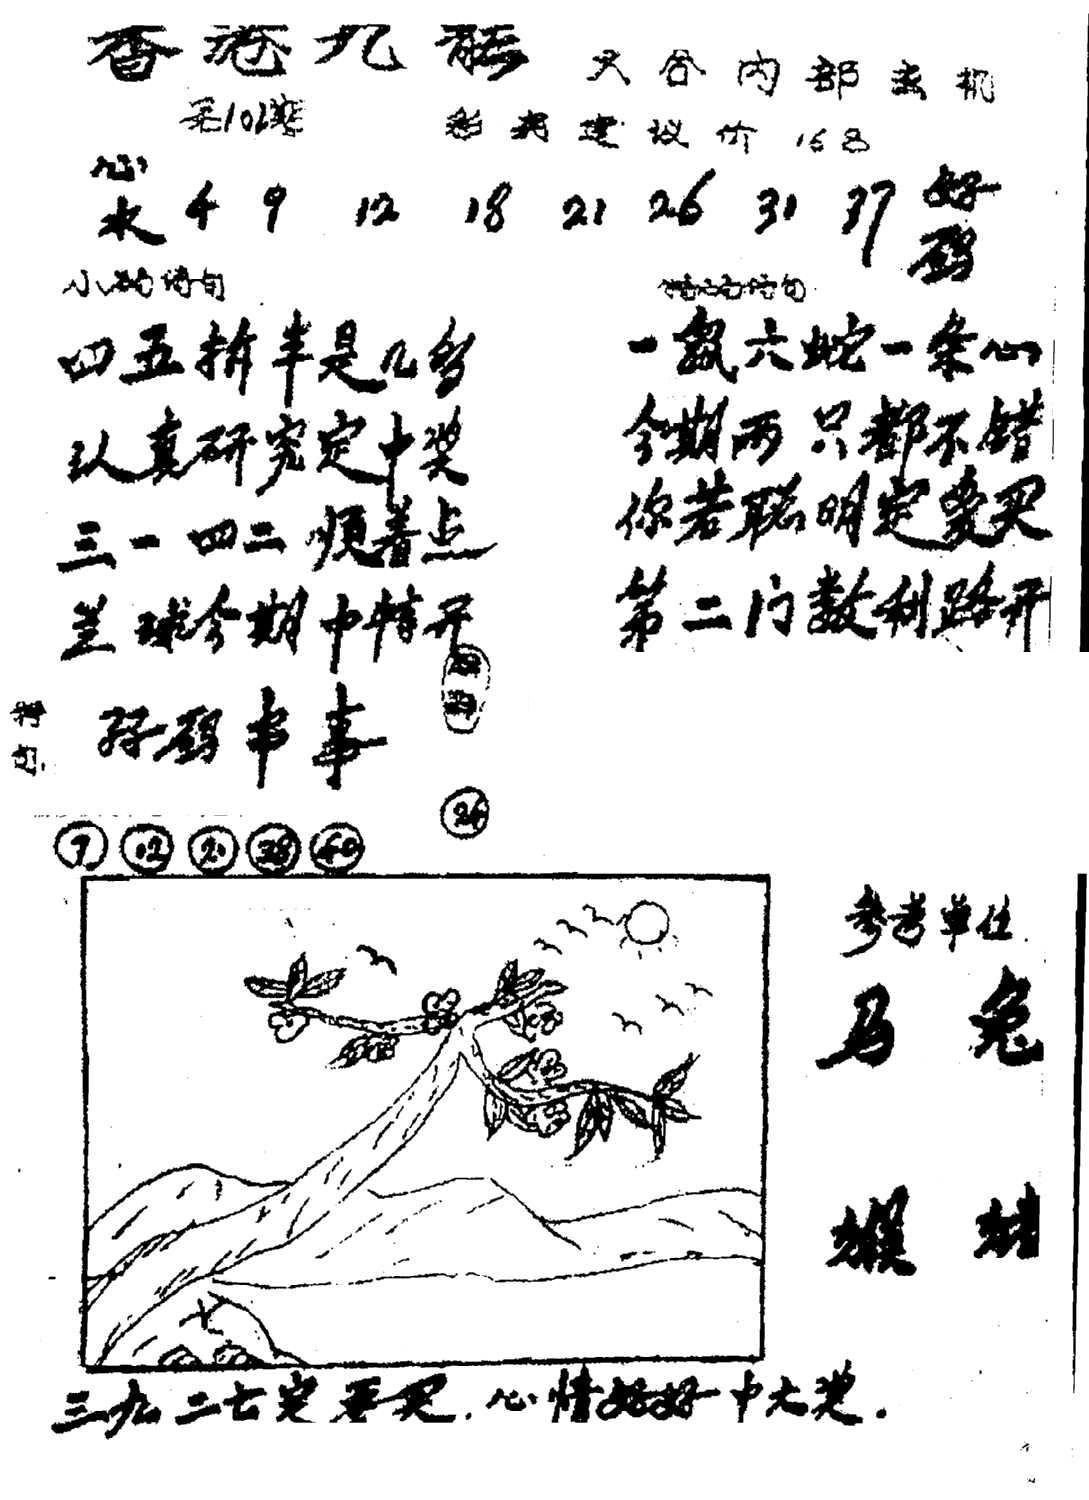 香港九龙
六合内部玄机
第102期
彩民建议价 168
心水 4 9 12 18 21 26 31 37 好码
诗句
四五拆半是几多
认真研究定中奖
三一四二顺着点
兰球今期中特开
一鼠六蛇一条心
今期两只都不错
你若聪明定要买
第二门数利路开
好码串事
26
9 12 21 38 40
参考单位
马 兔
猴 猪
三九二七定要买.心情好好中大奖.